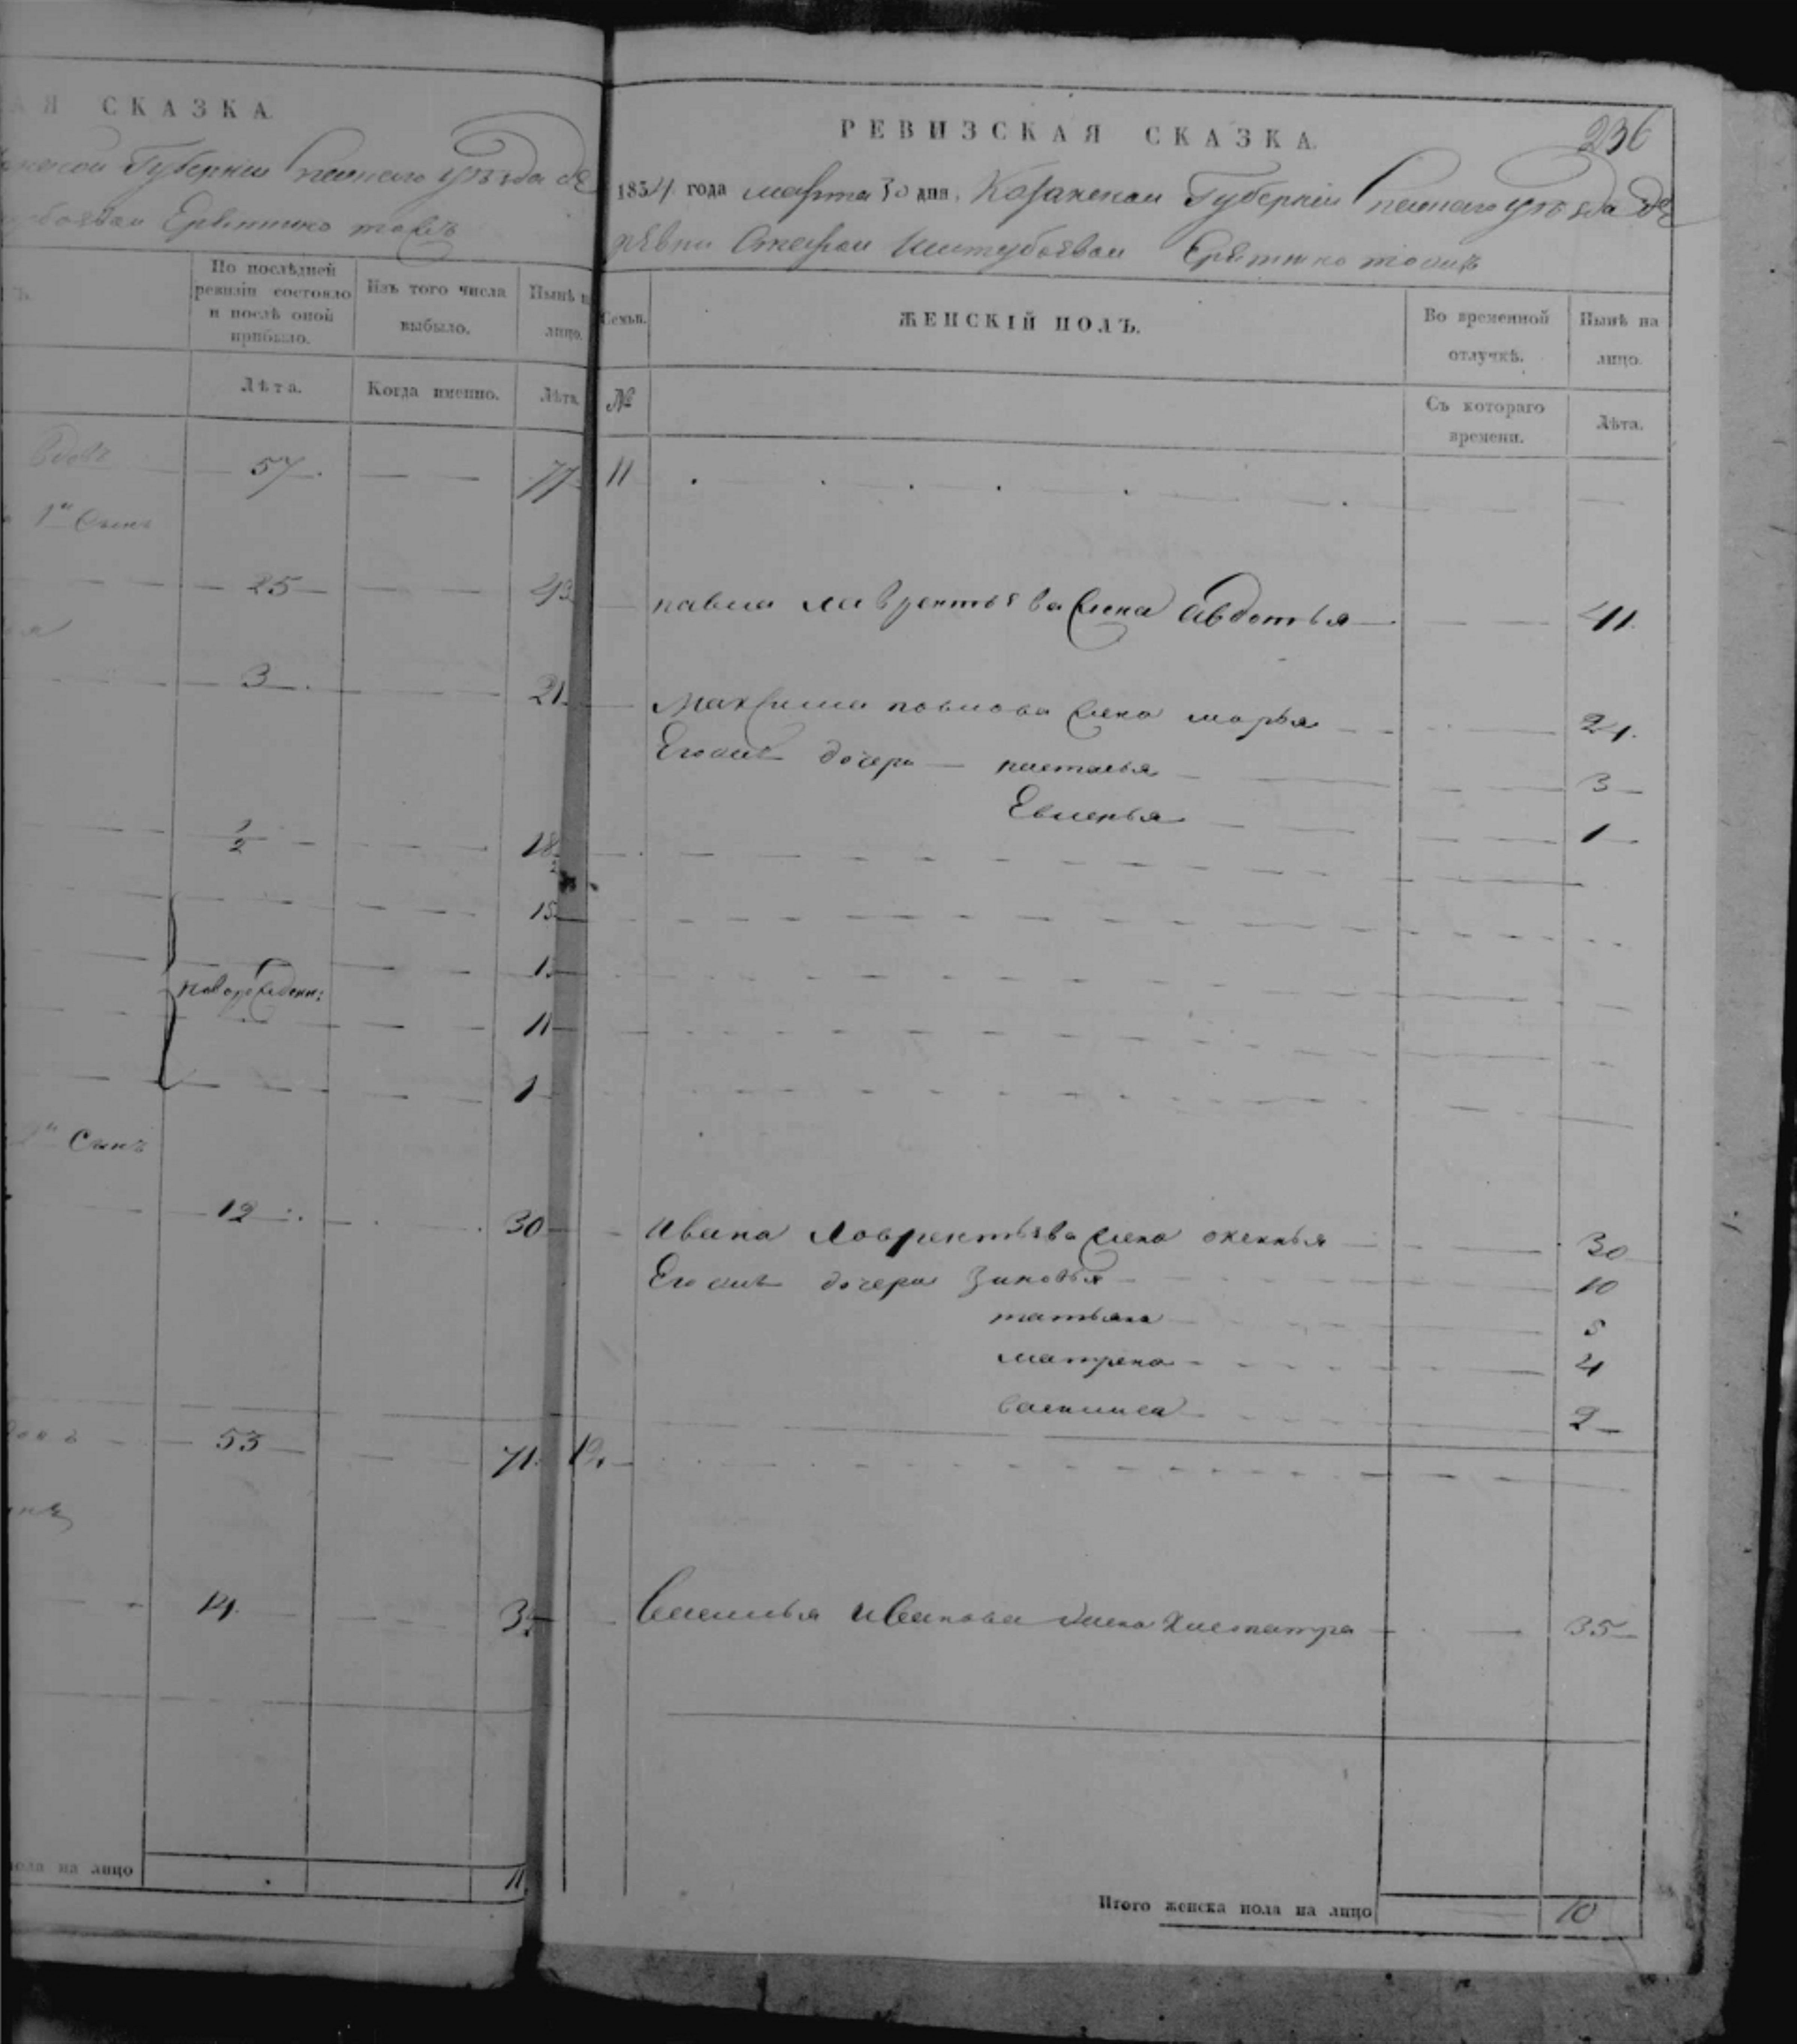 АЯ СКАЗКА
Губернии уѣзда де
По послѣдней ревизіи состояло и послѣ оной прибыло.
Изъ того числа выбыло.
Нынѣ на лицо.
Лѣта.
Когда именно.
Лѣта
57. 77
1й Сынъ
25
3 21
1/2 18
15
новорожденн:
11
1
Сынъ
12 30
53 71
14
пола на лицо 11
236
РЕВИЗСКАЯ СКАЗКА.
1854 года марта 30 дня. Казанской Губерніи уѣзда де
ревни Старой
Семьи. ЖЕНСКІЙ ПОЛЪ. Во временной отлучкѣ. Нынѣ на лицо.
№ Съ котораго времени. Лѣта.
11
павла лаврентьева жена авдотья 41
Максима павлова жена марья 21.
Егоже дочери настасья 3
Евгенья 1
Ивана Лаврентьева жена аксинья 30
Егоже дочери Зиновья 10
татьяна 5
матрена 4
василиса 2
12.
Василья Иванова жена 35
Итого женска пола на лицо 10